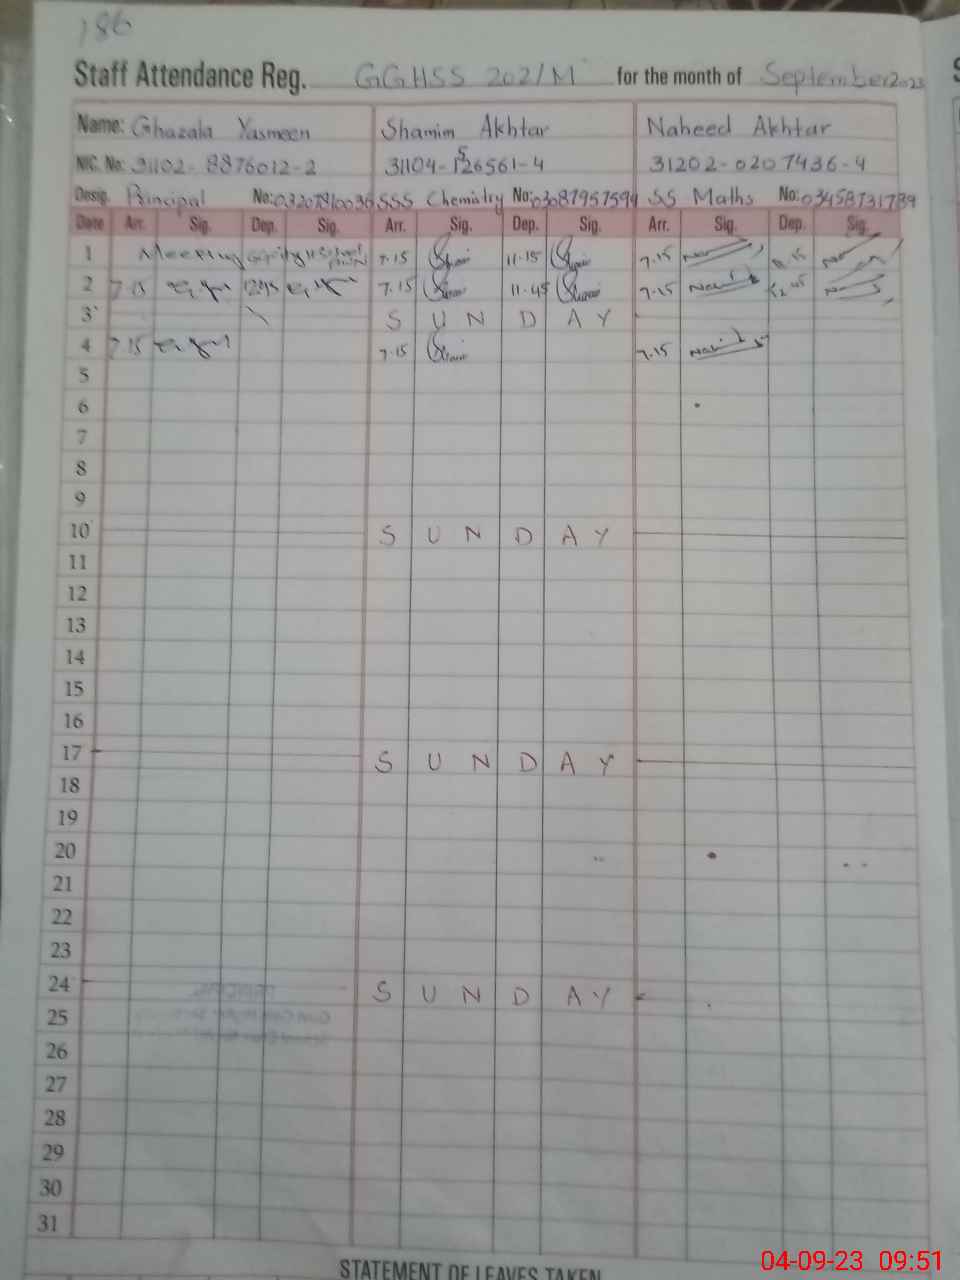 186
Staff Attendance Reg. GGHSS 202/M for the month of September 2023
Name: Ghazala Yasmeen Shamim Akhtar Naheed Akhtar
NIC. No: 31102-8876012-2 31104-1526561-4 31202-0207436-4
Desig. Principal No: SSS Chemistry No: 03087957594 SS Maths No: 03458731789
Date Arr. Sig. Dep. Sig. Arr. Sig. Dep. Sig. Arr. Sig. Dep. Sig.
1 Meeting 7.15 11.15 7.15
2 7.15 1245 7.15 11.45 7.15 12.45
3 S U N D A Y
4 7.15 7.15 7.15
5
6
7
8
9
10 S U N D A Y
11
12
13
14
15
16
17 S U N D A Y
18
19
20
21
22
23
24 S U N D A Y
25
26
27
28
29
30
31
STATEMENT OF LEAVES TAKEN
04-09-23 09:51